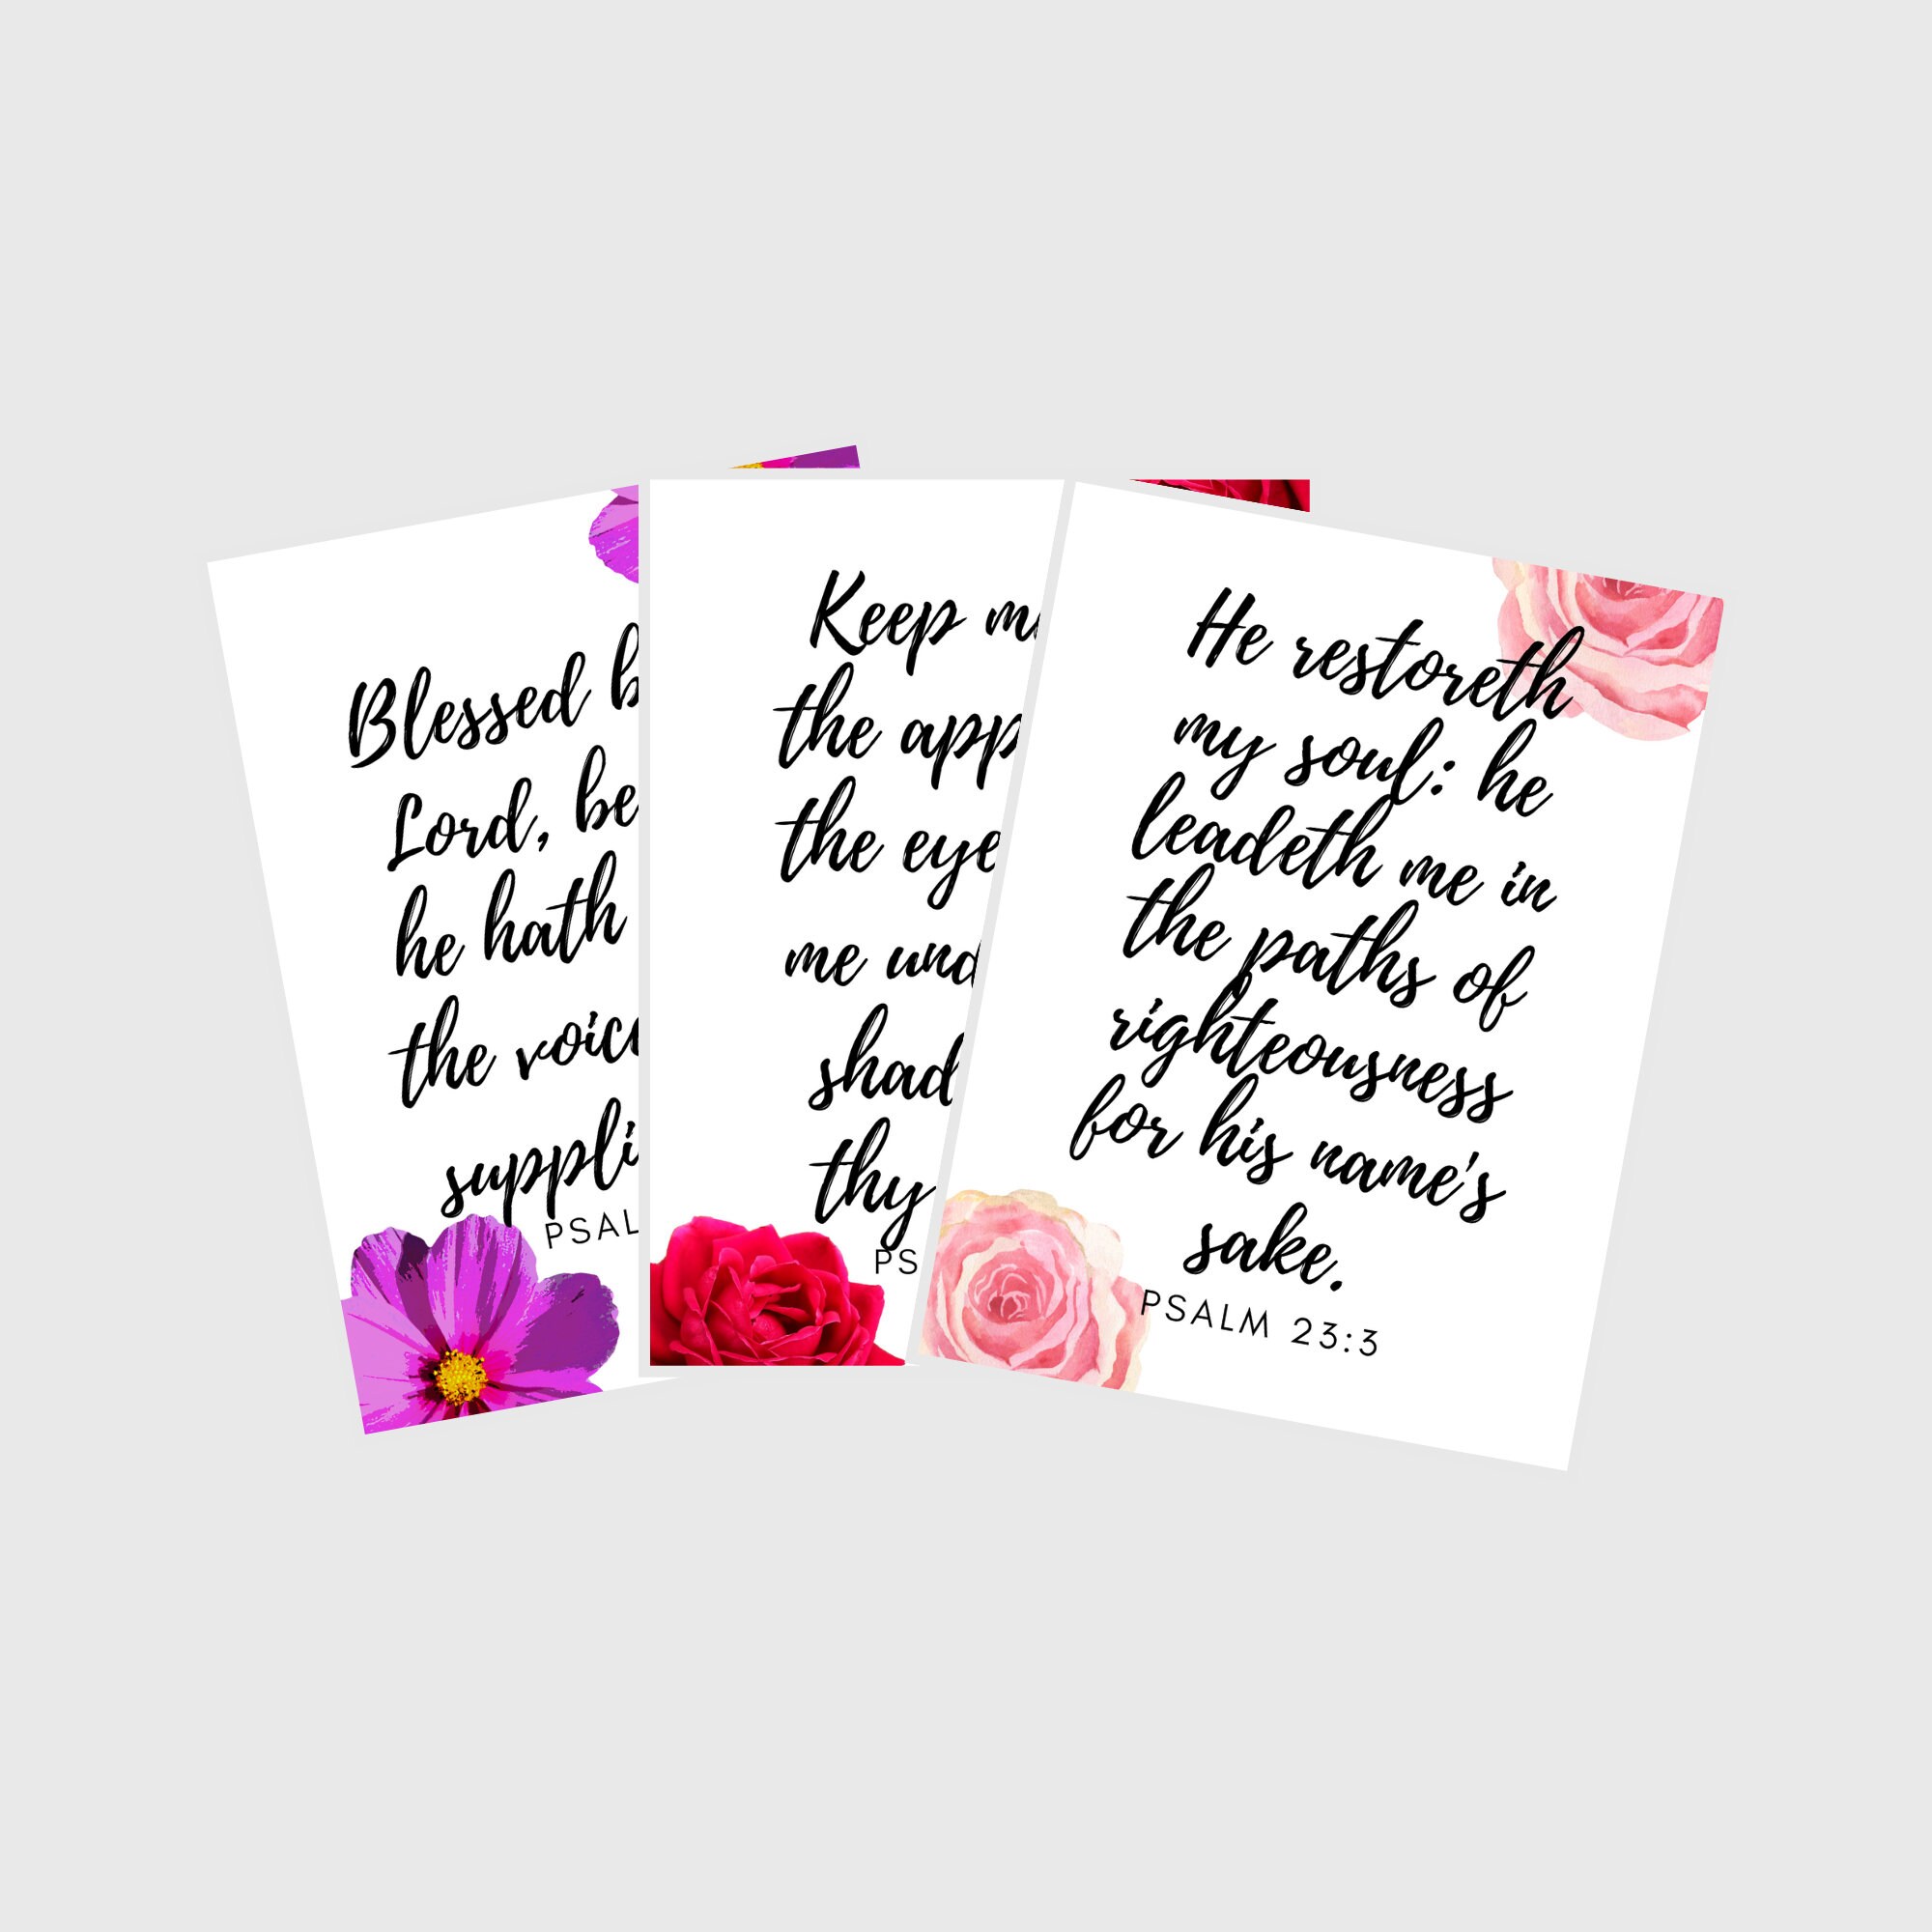 Blessed b
Lord, be
he hath
the voic
suppli
PSAL
Keep m
the app
the eye
me und
shad
thy
PS
He restoreth
my soul: he
leadeth me in
the paths of
righteousness
for his name's
sake.
PSALM 23:3